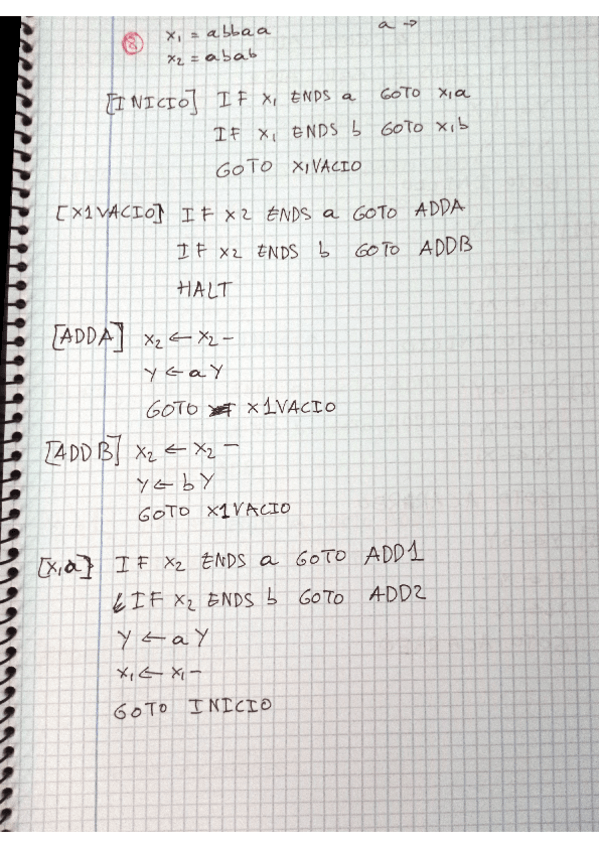 8 x₁ = abbaa a →
x₂ = abab
[INICIO] IF x₁ ENDS a GOTO x₁a
IF x₁ ENDS b GOTO x₁b
GOTO X₁VACIO
[X1VACIO] IF x2 ENDS a GOTO ADDA
IF x2 ENDS b GOTO ADDB
HALT
[ADDA] x₂ ← x₂ -
Y ← a Y
GOTO X1VACIO
[ADDB] x₂ ← x₂ -
Y ← b Y
GOTO X1VACIO
[x₁a] IF x₂ ENDS a GOTO ADD1
IF x₂ ENDS b GOTO ADD2
Y ← a Y
x₁ ← x₁ -
GOTO INICIO